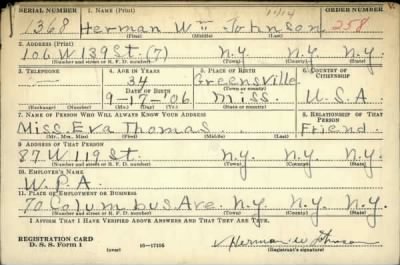 SERIAL NUMBER 1. NAME (Print) ORDER NUMBER
1368 Herman Wm Johnson 258
(First) (Middle) (Last)
2. ADDRESS (Print)
106 W 139 St. (7) N.Y. N.Y. N.Y.
(Number and street or R. F. D. number) (Town) (County) (State)
3. TELEPHONE 4. AGE IN YEARS 5. PLACE OF BIRTH 6. COUNTRY OF CITIZENSHIP
34 Greensville
DATE OF BIRTH (Town or county)
9-17-'06 Miss. U.S.A
(Exchange) (Number) (Mo.) (Day) (Yr.) (State or country)
7. NAME OF PERSON WHO WILL ALWAYS KNOW YOUR ADDRESS 8. RELATIONSHIP OF THAT PERSON
Miss. Eva Thomas Friend
(Mr., Mrs., Miss) (First) (Middle) (Last)
9. ADDRESS OF THAT PERSON
87 W 119 St. N.Y. N.Y. N.Y.
(Number and street or R. F. D. number) (Town) (County) (State)
10. EMPLOYER'S NAME
W.P.A.
11. PLACE OF EMPLOYMENT OR BUSINESS
70 Columbus Ave. N.Y. N.Y. N.Y.
(Number and street or R. F. D. number) (Town) (County) (State)
I AFFIRM THAT I HAVE VERIFIED ABOVE ANSWERS AND THAT THEY ARE TRUE.
REGISTRATION CARD
D. S. S. Form 1 (over) 16-17105 Herman W Johnson
(Registrant's signature)